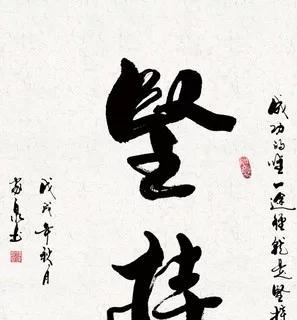 成功的唯一途径就是坚持
坚持
戊戌年秋月